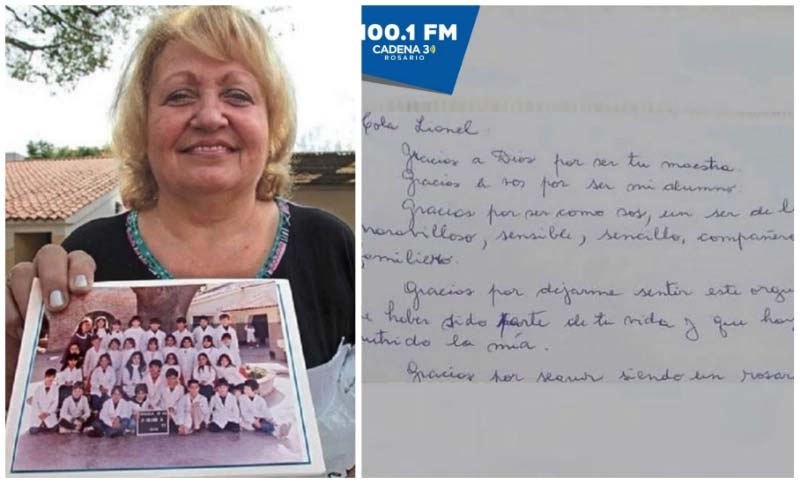 100.1 FM
CADENA 3
ROSARIO
Hola Lionel:
Gracias a Dios por ser tu maestra.
Gracias a vos por ser mi alumno.
Gracias por ser como sos, un ser de l
maravilloso, sensible, sencillo, compañero
familiero.
Gracias por dejarme sentir este orgu
e haber sido parte de tu vida y que hay
utrido la mía.
Gracias por seguir siendo un rosar